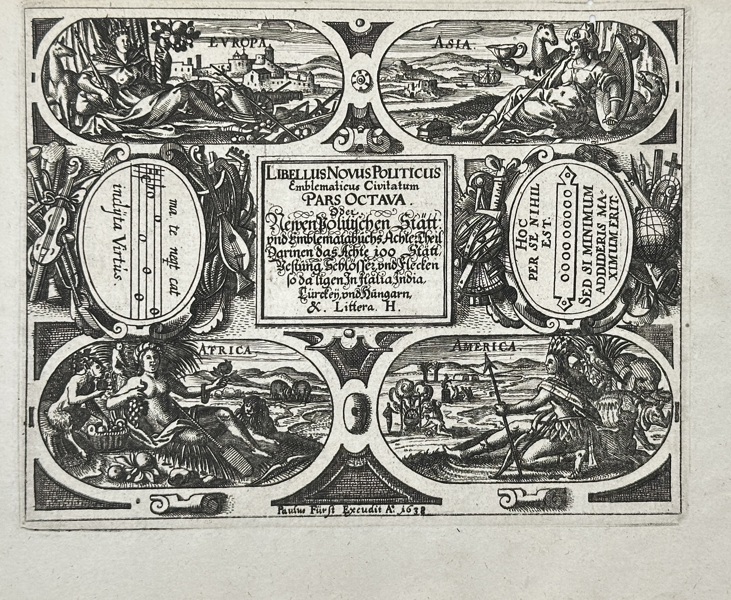 EVROPA
ASIA
LIBELLUS NOVUS POLITICUS
Emblematicus Civitatum
PARS OCTAVA.
Oder
Newen Politischen Stätt
vnd Emblemata buchs Achter Theil
Darinen das Achte 100 Statt
Vestung Schlösser vnd Flecken
so da ligen In Italia India
Türckeÿ, vnd Hungarn,
Littera H
ma te net cat
inclyta Virtus.
HOC
PER SE NIHIL
EST.
OOOOOOOOO
SED SI MINIMUM
ADDIDERIS MA-
XIMUM ERIT.
AFRICA.
AMERICA.
Paulus Fürst Excudit A.° 1638